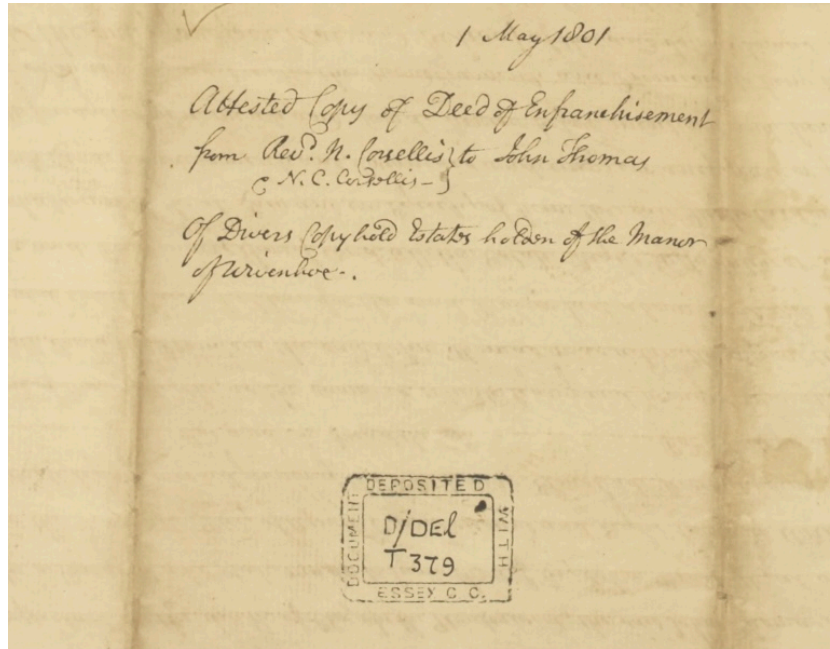 1 May 1801
Attested Copy of Deed of Enfranchisement
from Revd. N. Corsellis } to John Thomas
& N. C. Corsellis - }
Of Divers Copyhold Estates holden of the Manor
of Wivenhoe -.
DEPOSITED
DOCUMENT
WITH
D/DEl
T379
ESSEX C. C.